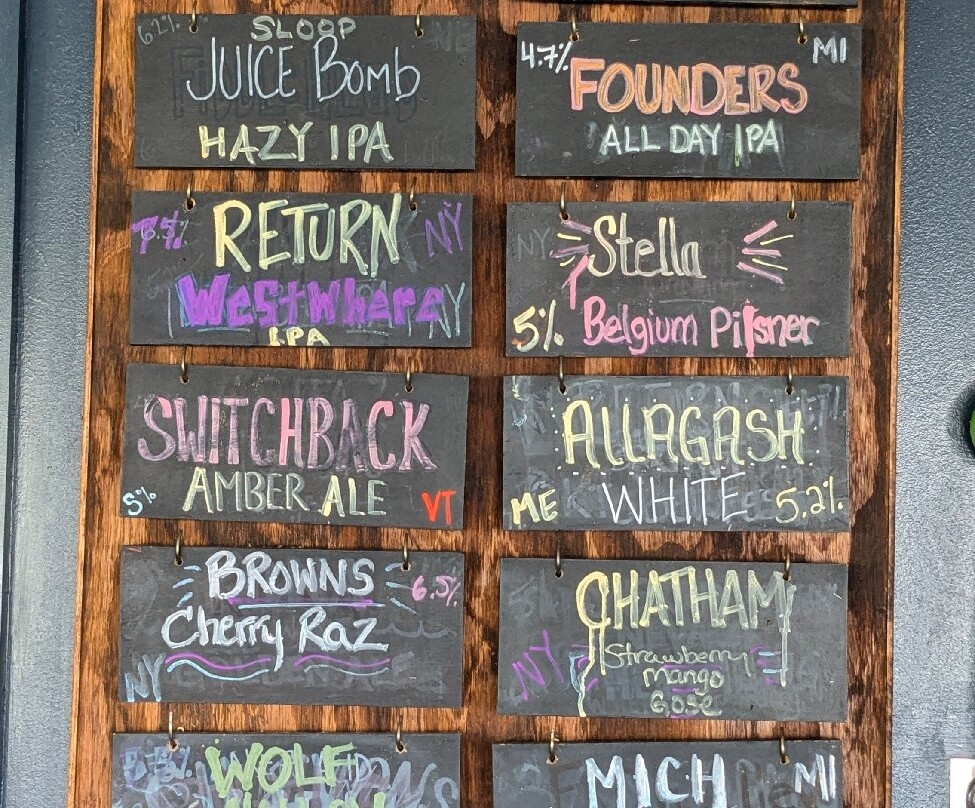 SLOOP
JUICE Bomb
HAZY IPA
4.7% MI
FOUNDERS
ALL DAY IPA
RETURN NY
WestWhere
I.PA
Stella
5% Belgium Pilsner
SWITCHBACK
5% AMBER ALE VT
ALLAGASH
ME WHITE 5.2%
BROWNS 6.5%
Cherry Raz
NY
CHATHAM
NY Strawberry
mango
Gose
WOLF
MICH MI